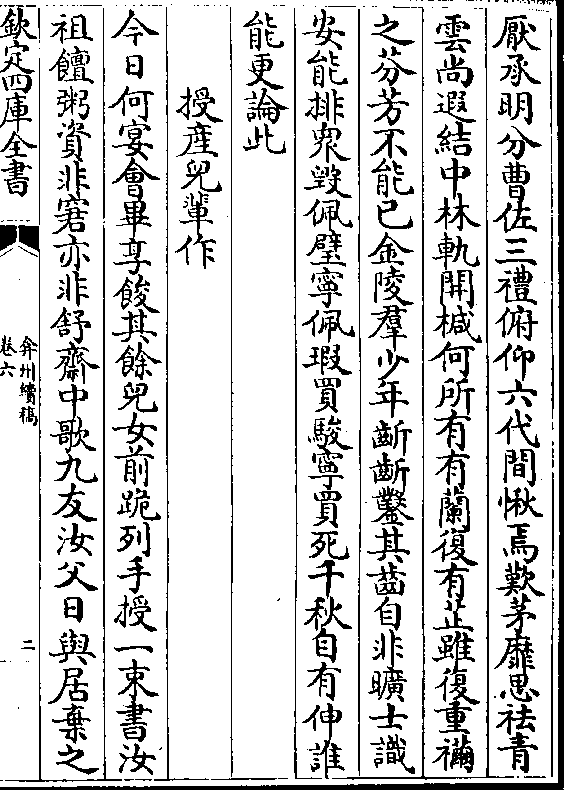 厭承明分曹佐三禮俯仰六代間愀焉歎茅靡思祛青
雲尚遐結中林軌開椷何所有有蘭復有芷雖復重襺
之芬芳不能已金陵羣少年齗齗鑿其齒自非曠士識
安能排衆毀佩璧寧佩瑕買駿寧買死千秋自有伸誰
能更論此
授産兒輩作
今日何宴會畢享餕其餘兒女前跪列手授一束書汝
祖饘粥資非窘亦非舒齋中歌九友汝父日與居棄之
欽定四庫全書
弇州續稿
卷六
二